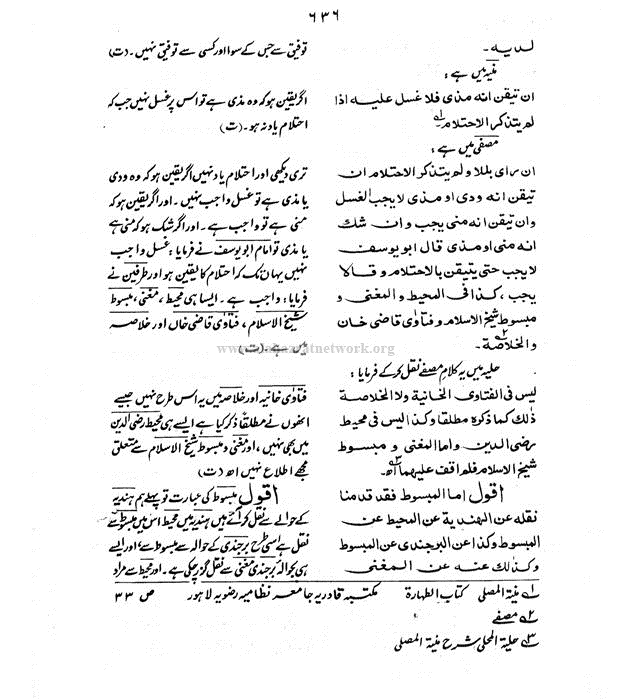 ۶۳۶
لديه۔
توفیق سے جس کے سوا اور کسی سے توفیق نہیں۔ (ت)
منیہ میں ہے :
ان تيقن انه مذى فلا غسل عليه اذا
لم يتذكر الاحتلام ؎۱
اگر یقین ہو کہ وہ مذی ہے تو اس پر غسل نہیں جب کہ
احتلام یاد نہ ہو۔ (ت)
مصفی میں ہے :
ان رای بللا ولم يتذكر الاحتلام ان
تيقن انه ودى او مذى لا يجب الغسل
وان تيقن انه منى يجب وان شك
انه منى او مذى قال ابو يوسف
لا يجب حتى يتيقن بالاحتلام وقالا
يجب ، كذا فى المحيط و المغنى و
مبسوط شيخ الاسلام و فتاوٰى قاضى خان
والخلاصة۔ ؎۲
تری دیکھی اور احتلام یاد نہیں اگر یقین ہو کہ وہ ودی
یا مذی ہے تو غسل واجب نہیں۔ اور اگر یقین ہو کہ
منی ہے تو واجب ہے۔ اور اگر شک ہو کہ منی ہے
یا مذی تو امام ابویوسف نے فرمایا : غسل واجب
نہیں یہاں تک کہ احتلام کا یقین ہو اور طرفین نے
فرمایا : واجب ہے۔ ایسا ہی محیط ، مغنی ، مبسوط
شیخ الاسلام ، فتاوٰی قاضی خاں اور خلاصہ
میں ہے (ت)
حلیہ میں یہ کلامِ مصفے نقل کر کے فرمایا :
ليس فى الفتاوى الخانية ولا الخلاصة
ذلك كما ذكره مطلقا وكذا ليس فى محيط
رضى الدين واما المغنى و مبسوط
شيخ الاسلام فلم اقف عليهما ؎۳ اھ
فتاوٰی خانیہ اور خلاصہ میں یہ اس طرح نہیں جیسے
انھوں نے مطلقًا ذکر کیا ہے ایسے ہی محیط رضی الدین
میں بھی نہیں ، اور مغنی و مبسوط شیخ الاسلام سے متعلق
مجھے اطلاع نہیں اھ (ت)
اقول اما المبسوط فقد قدمنا
نقله عن الهندية عن المحيط عن
المبسوط وكذا عن البرجندى عن المبسوط
وكذلك عنه عن المغنى
اقول مبسوط کی عبارت تو پہلے ہم ہندیہ
کے حوالے سے نقل کر آئے ہیں ہندیہ میں محیط اس میں مبسوط سے
نقل ہے اسی طرح برجندی کے حوالہ سے مبسوط سے ، اور ایسے
ہی بحوالہ برجندی مغنی سے نقل گزر چکی ہے۔ اور محیط سے مراد
؎۱ منیۃ المصلی کتاب الطہارۃ مکتبہ قادریہ جامعہ نظامیہ رضویہ لاہور ص ۳۳
؎۲ مصفے
؎۳ حلیۃ المحلی شرح منیۃ المصلی